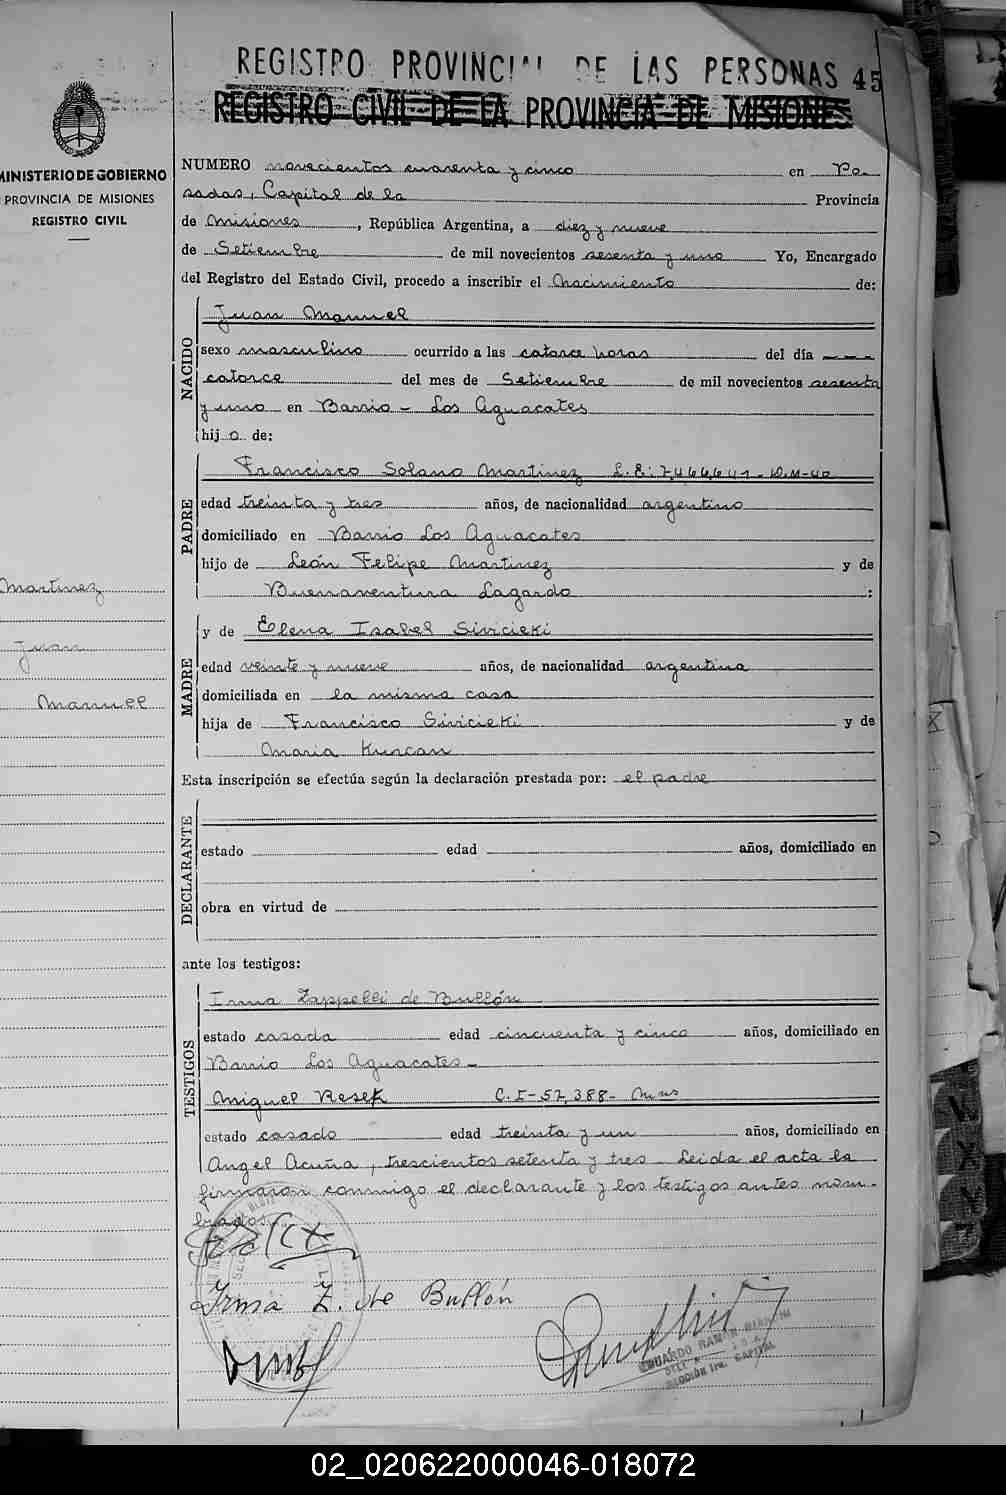 REGISTRO PROVINCIAL DE LAS PERSONAS 45
REGISTRO CIVIL DE LA PROVINCIA DE MISIONES
MINISTERIO DE GOBIERNO
PROVINCIA DE MISIONES
REGISTRO CIVIL
NUMERO novecientos cuarenta y cinco en Po-
sadas, Capital de la Provincia
de Misiones, República Argentina, a diez y nueve
de Setiembre de mil novecientos sesenta y uno Yo, Encargado
del Registro del Estado Civil, procedo a inscribir el Nacimiento de:
NACIDO
Juan Manuel
sexo masculino ocurrido a las catorce horas del día
catorce del mes de Setiembre de mil novecientos sesenta
y uno en Barrio - Los Aguacates
hijo de:
PADRE
Francisco Solano Martinez L.E. 7.466.641 - D.M-40
edad treinta y tres años, de nacionalidad argentino
domiciliado en Barrio Los Aguacates
hijo de León Felipe Martinez y de
Buenaventura Lagardo :
Martinez
Juan
Manuel
MADRE
y de Elena Isabel Sivicieki
edad veinte y nueve años, de nacionalidad argentina
domiciliada en la misma casa
hija de Francisco Sivicieki y de
Maria Kurcan
Esta inscripción se efectúa según la declaración prestada por: el padre
DECLARANTE
estado edad años, domiciliado en
obra en virtud de
ante los testigos:
TESTIGOS
Irma Zappelli de Bullón
estado casada edad cincuenta y cinco años, domiciliado en
Barrio Los Aguacates -
Miguel Resek C.I-57.388- Mnes
estado casado edad treinta y un años, domiciliado en
Angel Acuña, trescientos setenta y tres. Leida el acta la
firmaron conmigo el declarante y los testigos antes nom-
brados
Irma Z. de Bullón
EDUARDO RAMON
CAPITAL
02_020622000046-018072